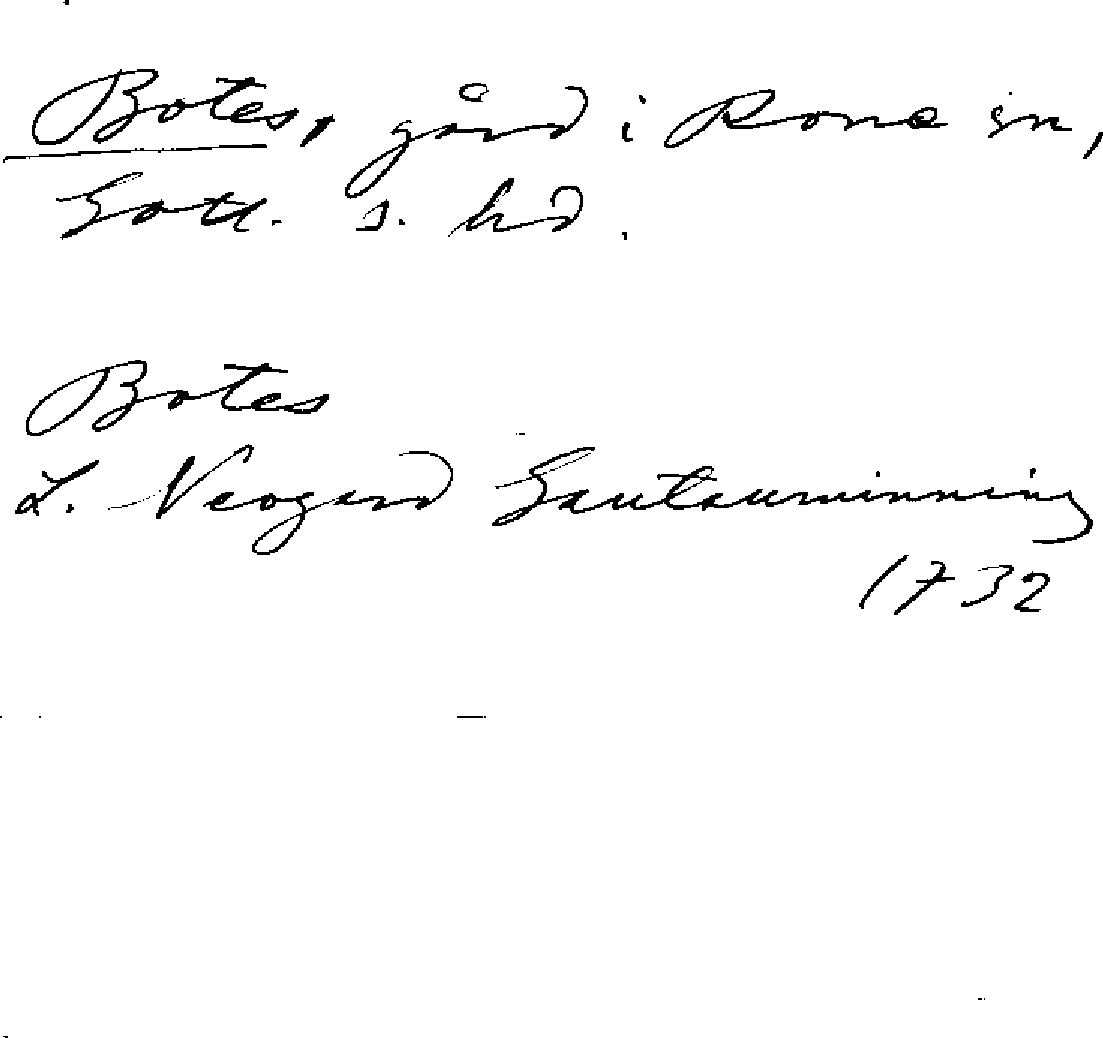 Botes, gård i Rone sn,
Gotl. s. hd.
Botes
L. Neogard Gautauminning
1732